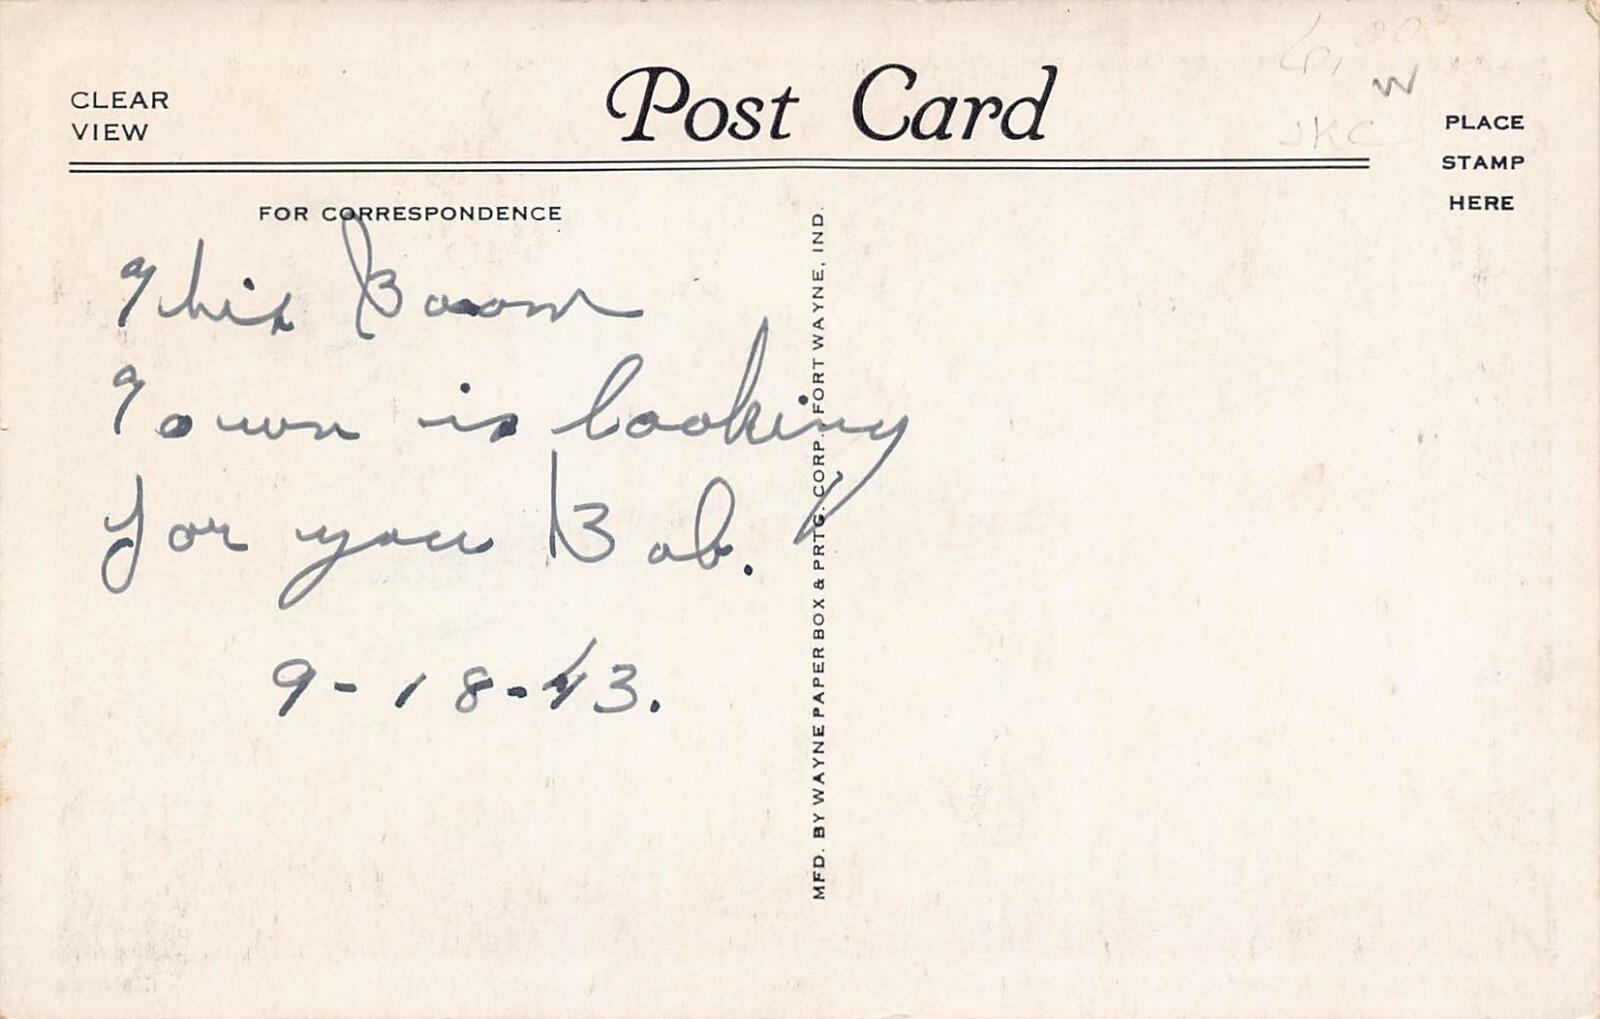 CLEAR
VIEW
Post Card
6.00
W
JKC
PLACE
STAMP
HERE
FOR CORRESPONDENCE
This Boom
Town is looking
for you Bob.
9-18-43.
MFD. BY WAYNE PAPER BOX & PRTG. CORP. FORT WAYNE, IND.